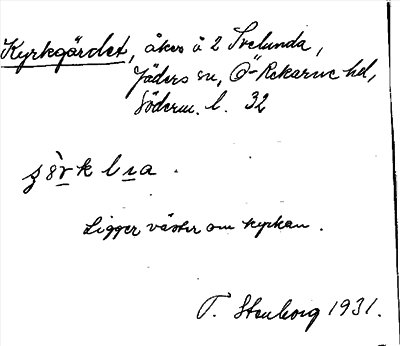 Kyrkgärdet, åker å 2 Svelunda,
Jäders sn, Ö-Rekarne hd,
Söderm. l. 32
Ligger väster om kyrkan.
T. Stenborg 1931.